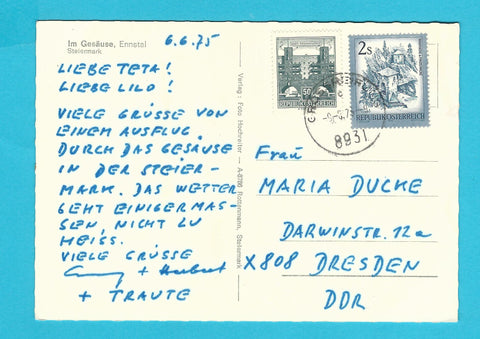 Im Gesäuse, Ennstal
Steiermark
6.6.75
LIEBE TETA!
LIEBE LILO!
VIELE GRÜSSE VON
EINEM AUSFLUG
DURCH DAS GESÄUSE
IN DER STEIER-
MARK. DAS WETTER
GEHT EINIGERMAS-
SEN, NICHT ZU
HEISS.
VIELE GRÜSSE
+ Herbert
+ TRAUTE
Verlag: Foto Hochreiter - A-8786 Rottenmann, Steiermark
50
REPUBLIK ÖSTERREICH
2S
REPUBLIK ÖSTERREICH
8931
Frau
MARIA DUCKE
DARWINSTR. 12a
X808 DRESDEN
DDR